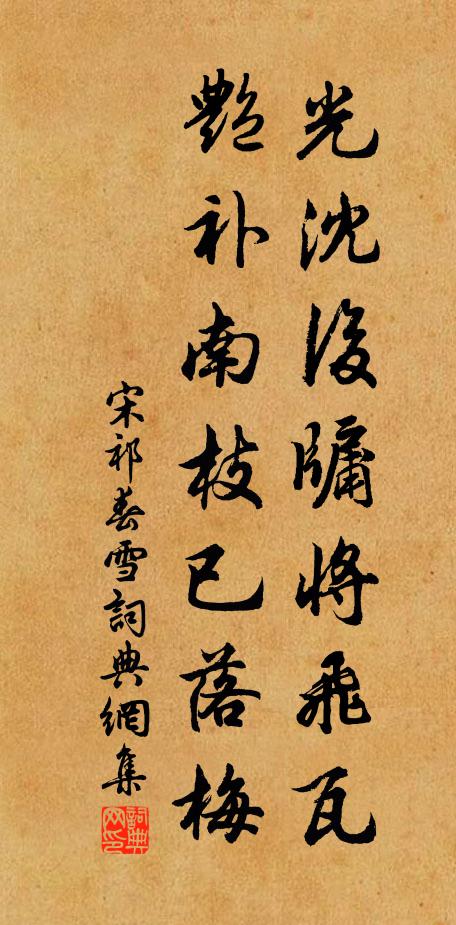 光沈後牖將飛瓦
艷补南枝已落梅
宋祁春雪詞典網集
詞典网印